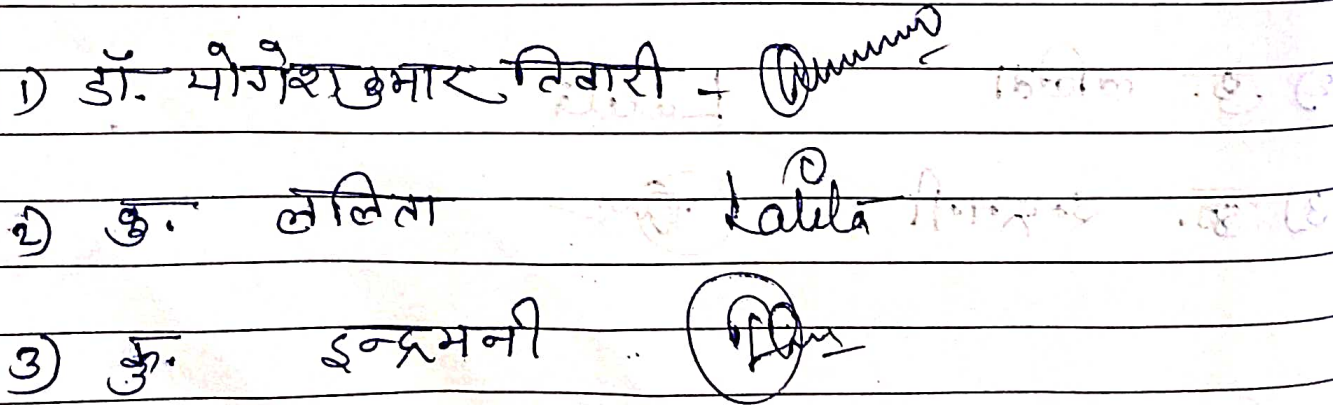 1) डॉ. योगेश कुमार तिवारी -
2) कु. ललिता Lalita
3) कु. इन्द्रमनी